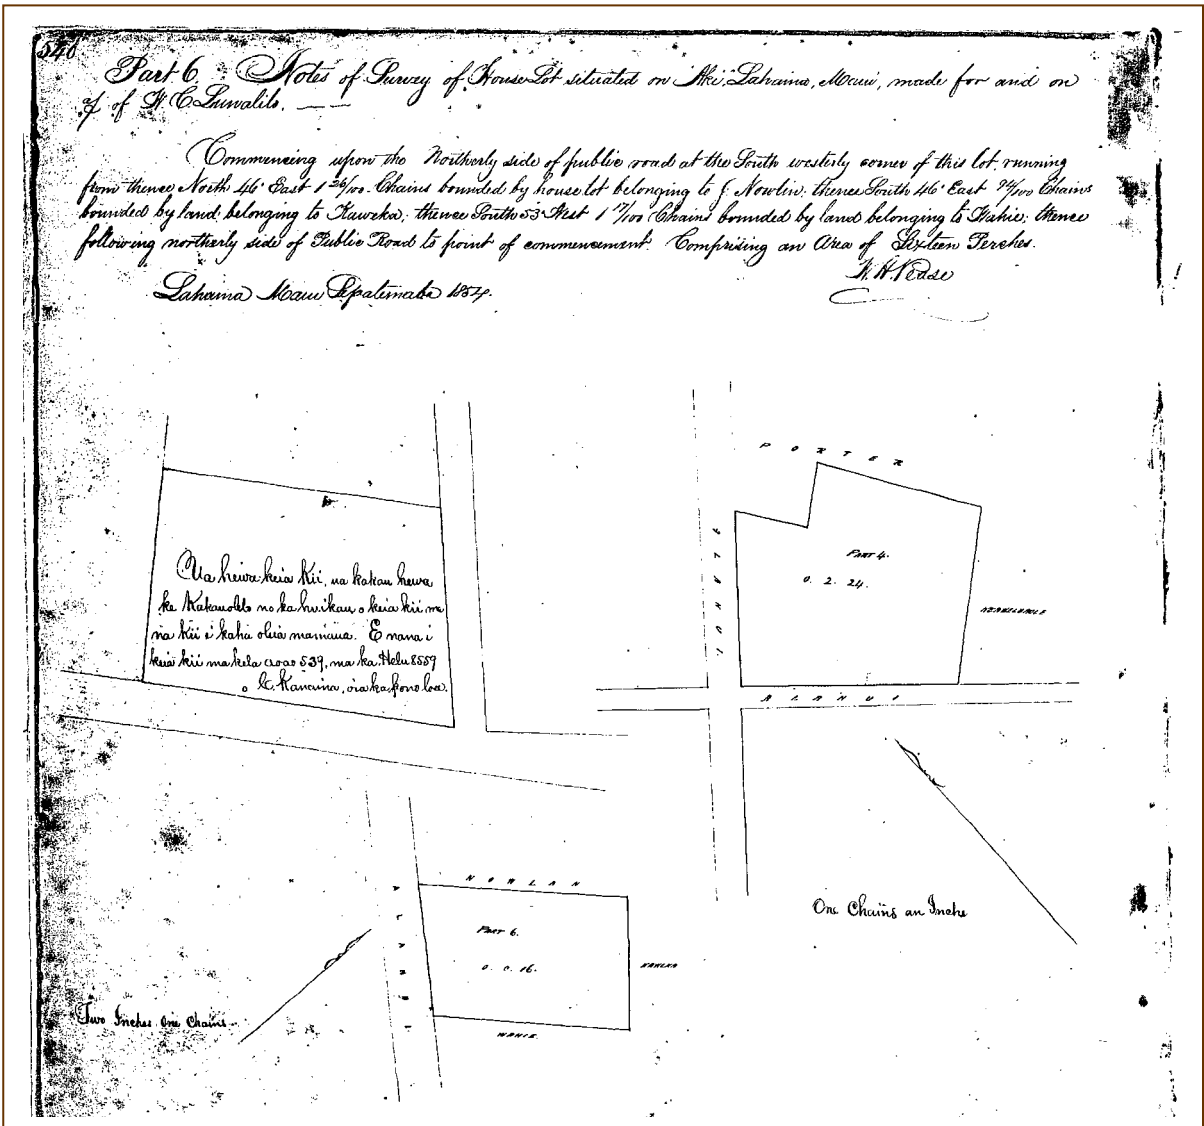 540
Part 6. Notes of Survey of House Lot situated on Aki, Lahaina, Maui, made for and on
of W. C. Lunalilo.
Commencing upon the Northerly side of public road at the South westerly corner of this lot running
from thence North 46° East 1 26/100 Chains bounded by house lot belonging to J. Nowlin; thence South 46° East 94/100 Chains
bounded by land belonging to Kaweka; thence South 53° West 1 17/100 Chains bounded by land belonging to Wahie; thence
following northerly side of Public Road to point of commencement. Comprising an Area of Sixteen Perches.
W. H. Pease
Lahaina Maui Sepatemaba 1854.
PORTER
ALANUI
PART 4.
0. 2. 24.
ALANUI
Ua hewa keia kii, ua kakau hewa
ke Kakauolelo no ka huikau o keia kii me
na kii i kaha oluia mamua. E nana i
keia kii ma kela aoao 539, ma ka Helu 8559
o C. Kanaina, oia ka pono loa.
One Chains an Inche
NOWLAN
ALANUI
PART 6.
0. 0. 16.
KAWEKA
WAHIE
Two Inches One Chains